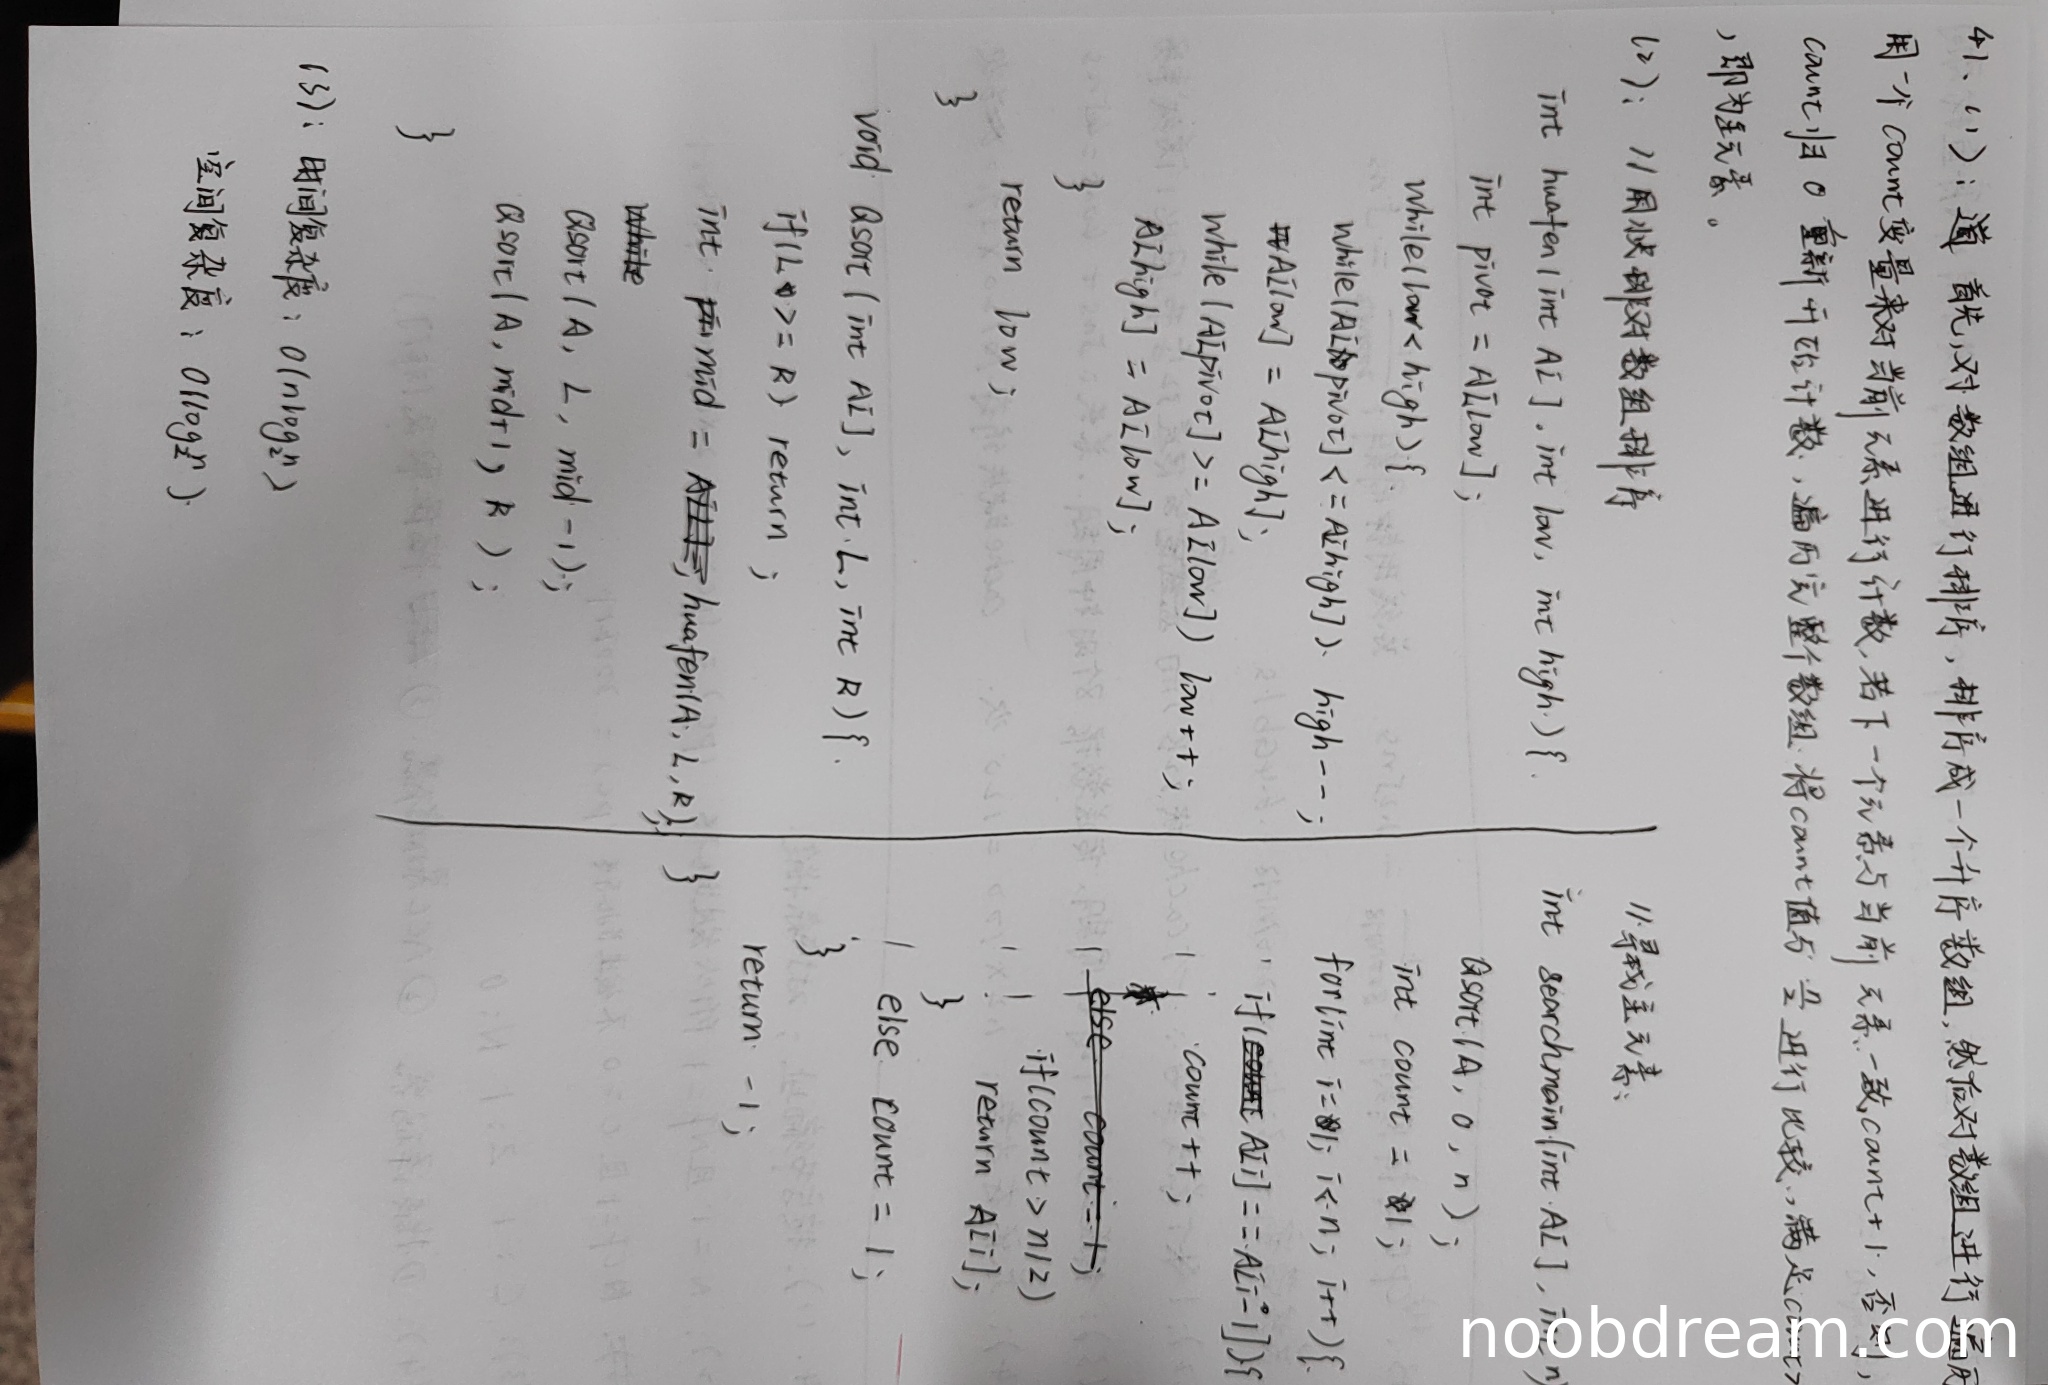 41、(1)：首先,对数组进行排序，排序成一个升序数组,然后对数组进行遍历
用一个count变量来对当前元素进行计数,若下一个元素与当前元素一致,count+1,否则,
count归0重新开始计数,遍历完整个数组.将count值与n/2进行比较,满足count>
,即为主元素。
(2)：//用快排对数组排序
int huafen(int A[],int low,int high){
int pivot = A[low];
while(low<high){
while(A[pivot]<=A[high]) high--;
A[low] = A[high];
while(A[pivot]>=A[low]) low++;
A[high] = A[low];
}
return low;
}
void Qsort(int A[], int L, int R){
if(L>=R) return;
int mid = huafen(A,L,R);
Qsort(A, L, mid-1);
Qsort(A, mid+1, R);
}
//寻找主元素:
int searchmain(int A[], int n)
Qsort(A,0,n);
int count = 1;
for(int i=1; i<n; i++){
if(A[i]==A[i-1]){
count++;
else count=1;
if(count>n/2)
return A[i];
}
else count = 1;
}
return -1;
}
(3)：时间复杂度：O(nlog2n)
空间复杂度：O(log2n).
noobdream.com